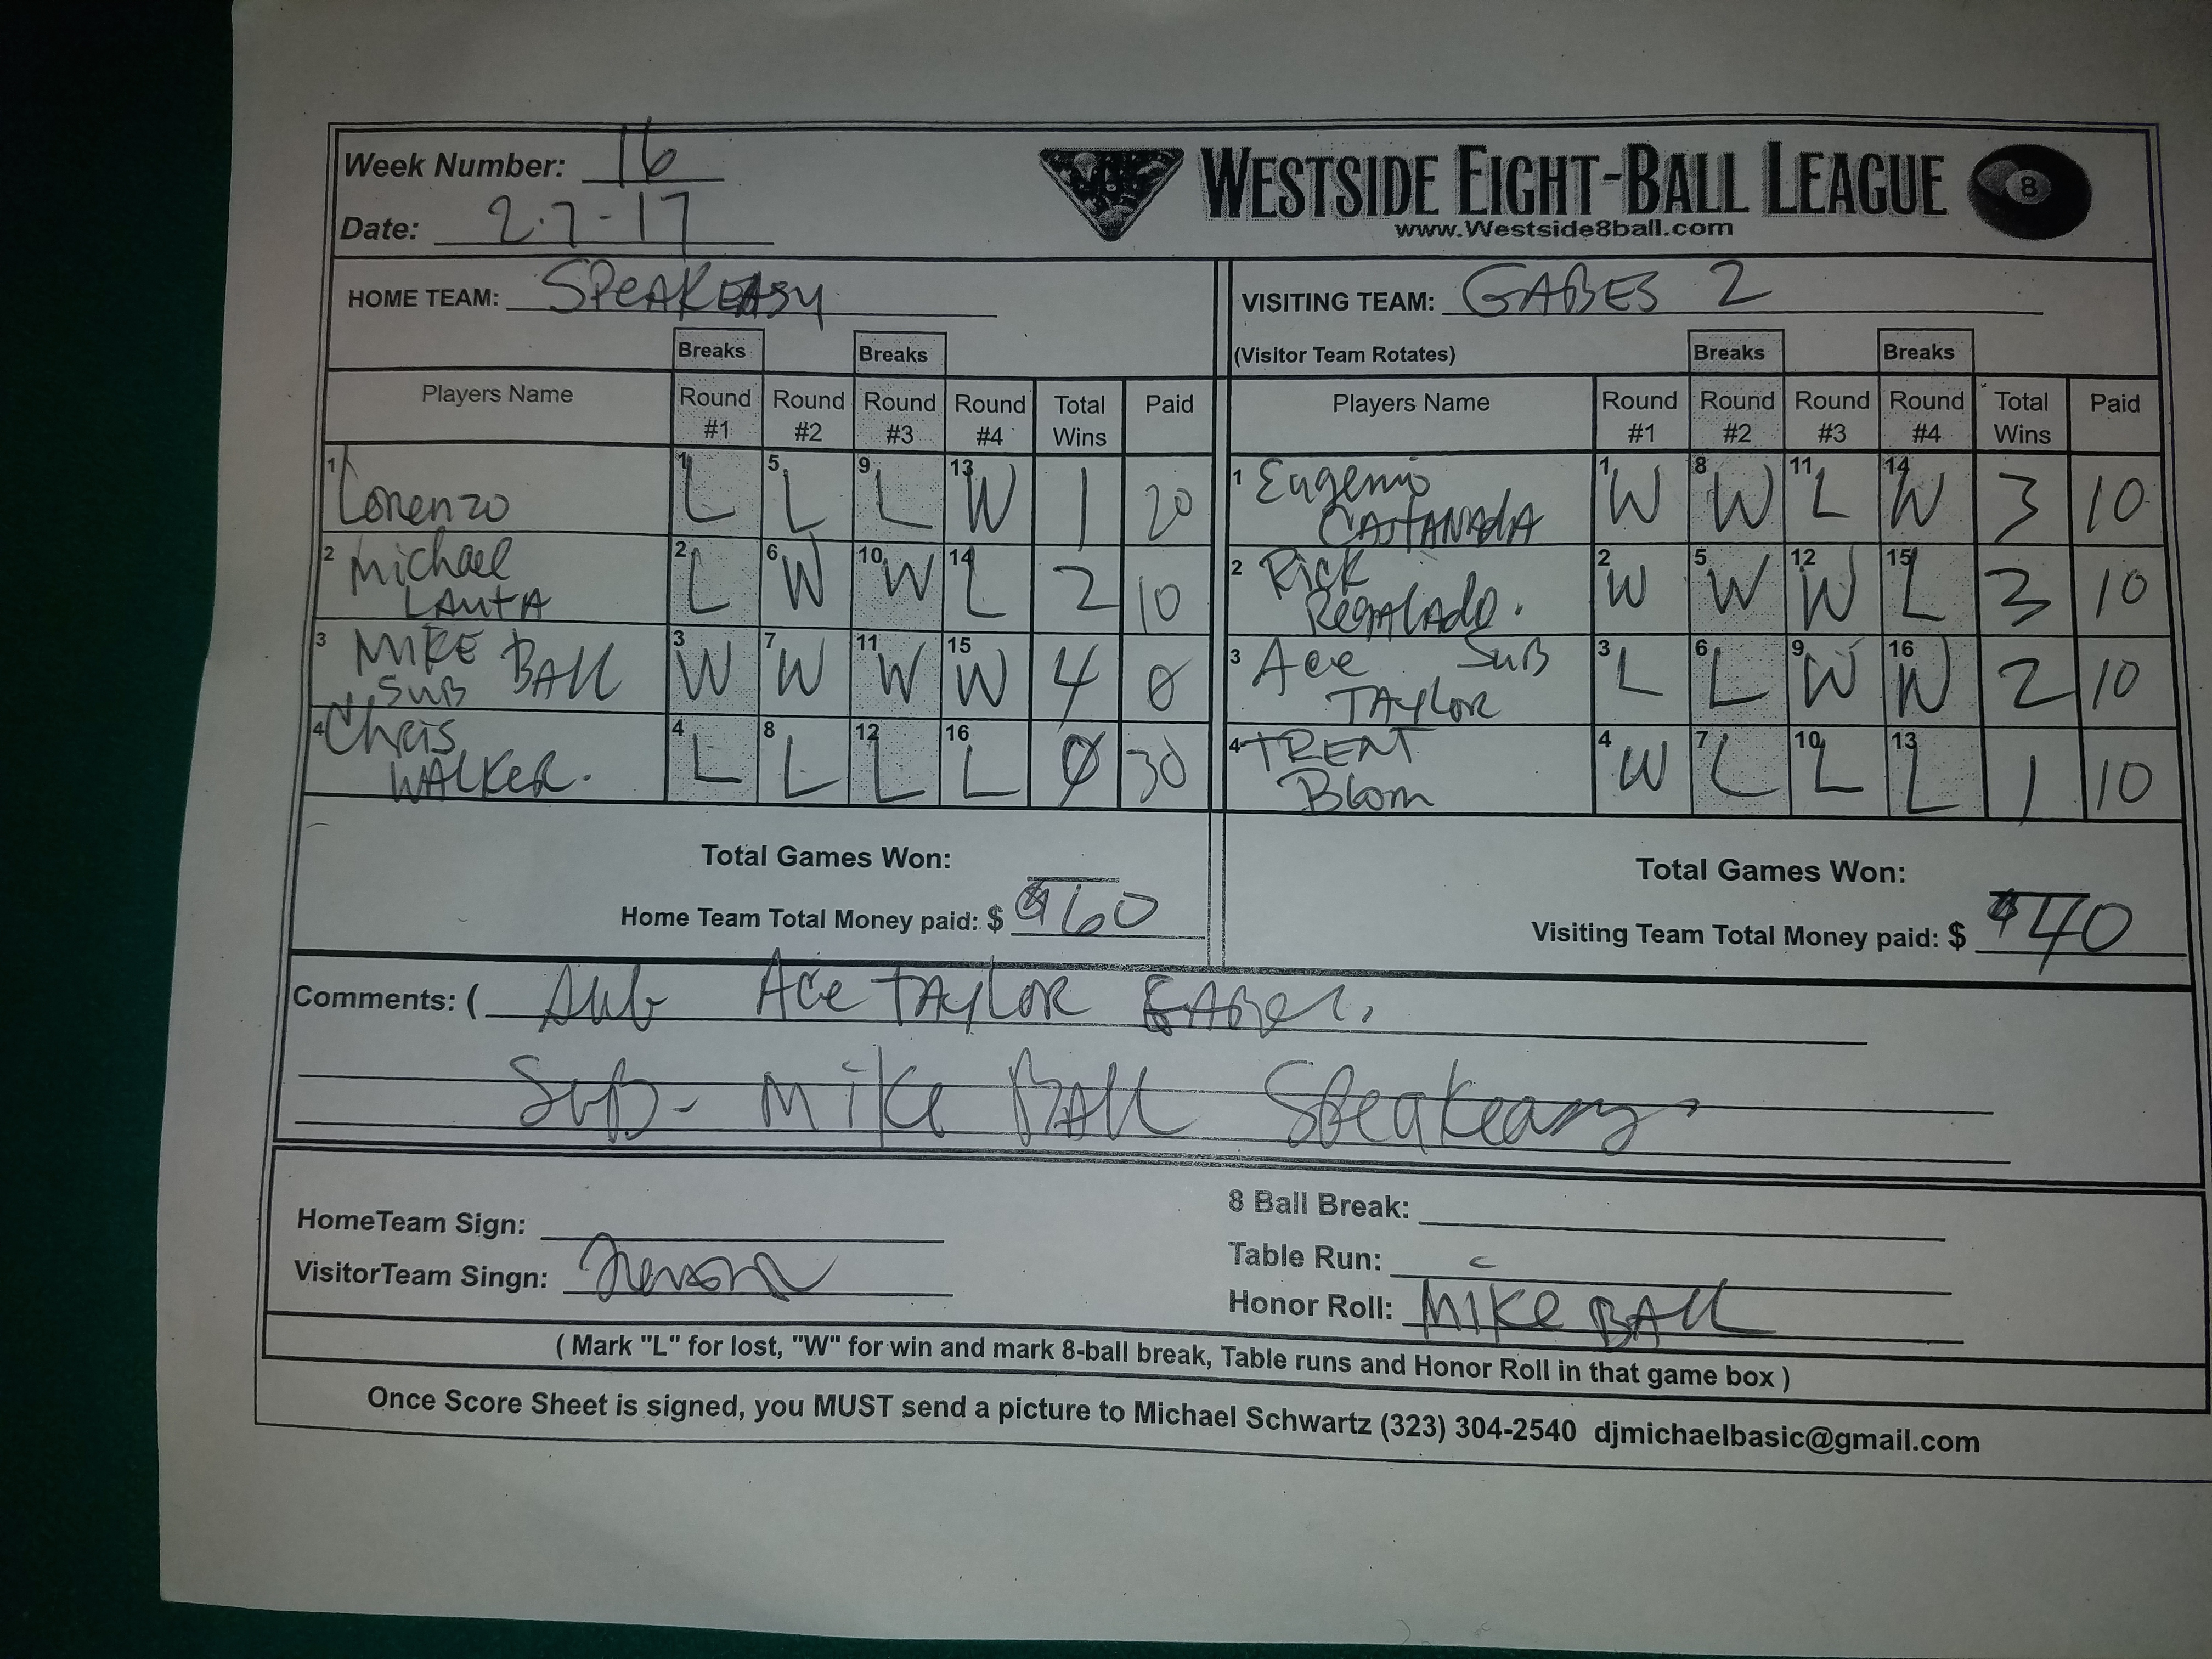 Week Number: 16
Date: 2.7-17
WESTSIDE EIGHT-BALL LEAGUE 8
www.Westside8ball.com
HOME TEAM: SPEAKEASY
VISITING TEAM: GABES 2
Breaks Breaks
(Visitor Team Rotates) Breaks Breaks
Players Name Round #1 Round #2 Round #3 Round #4 Total Wins Paid
Players Name Round #1 Round #2 Round #3 Round #4 Total Wins Paid
1 Lorenzo 1 L 5 L 9 L 13 W 1 20
1 Eugenio CASTANADA 1 W 8 W 11 L 14 W 3 10
2 Michael LAUTA 2 L 6 W 10 W 14 L 2 10
2 Rick Regalado. 2 W 5 W 12 W 15 L 3 10
3 MIKE BALL SUB 3 W 7 W 11 W 15 W 4 0
3 Ace SUB TAYLOR 3 L 6 L 9 W 16 W 2 10
4 Chris WALKER. 4 L 8 L 12 L 16 L 0 30
4 TRENT Blom 4 W 7 L 10 L 13 L 1 10
Total Games Won:
Home Team Total Money paid: $ $60
Total Games Won:
Visiting Team Total Money paid: $ $40
Comments: ( Sub ACE TAYLOR
SUB- MIKE BALL Speakeasy
HomeTeam Sign:
VisitorTeam Singn:
8 Ball Break:
Table Run:
Honor Roll: MIKE BALL
( Mark "L" for lost, "W" for win and mark 8-ball break, Table runs and Honor Roll in that game box )
Once Score Sheet is signed, you MUST send a picture to Michael Schwartz (323) 304-2540 djmichaelbasic@gmail.com